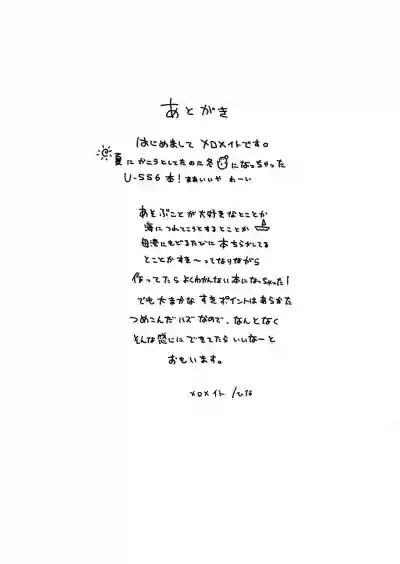 あとがき
はじめまして メロメイトです。
夏にかこうとしてたのに冬になっちゃった
U-556 本! まあいいや わーい
あそぶことが大好きなとことか
海につれてこうとするとことか
母港にもどるたびに 本ちらかしてる
とことかすき〜ってなりながら
作ってたらよくわかんない本になっちゃった!
でも大まかな すきポイントはあらかた
つめこんだハズなので、なんとなく
そんな感じに できてたら いいなーと
おもいます。
メロメイト /ひな